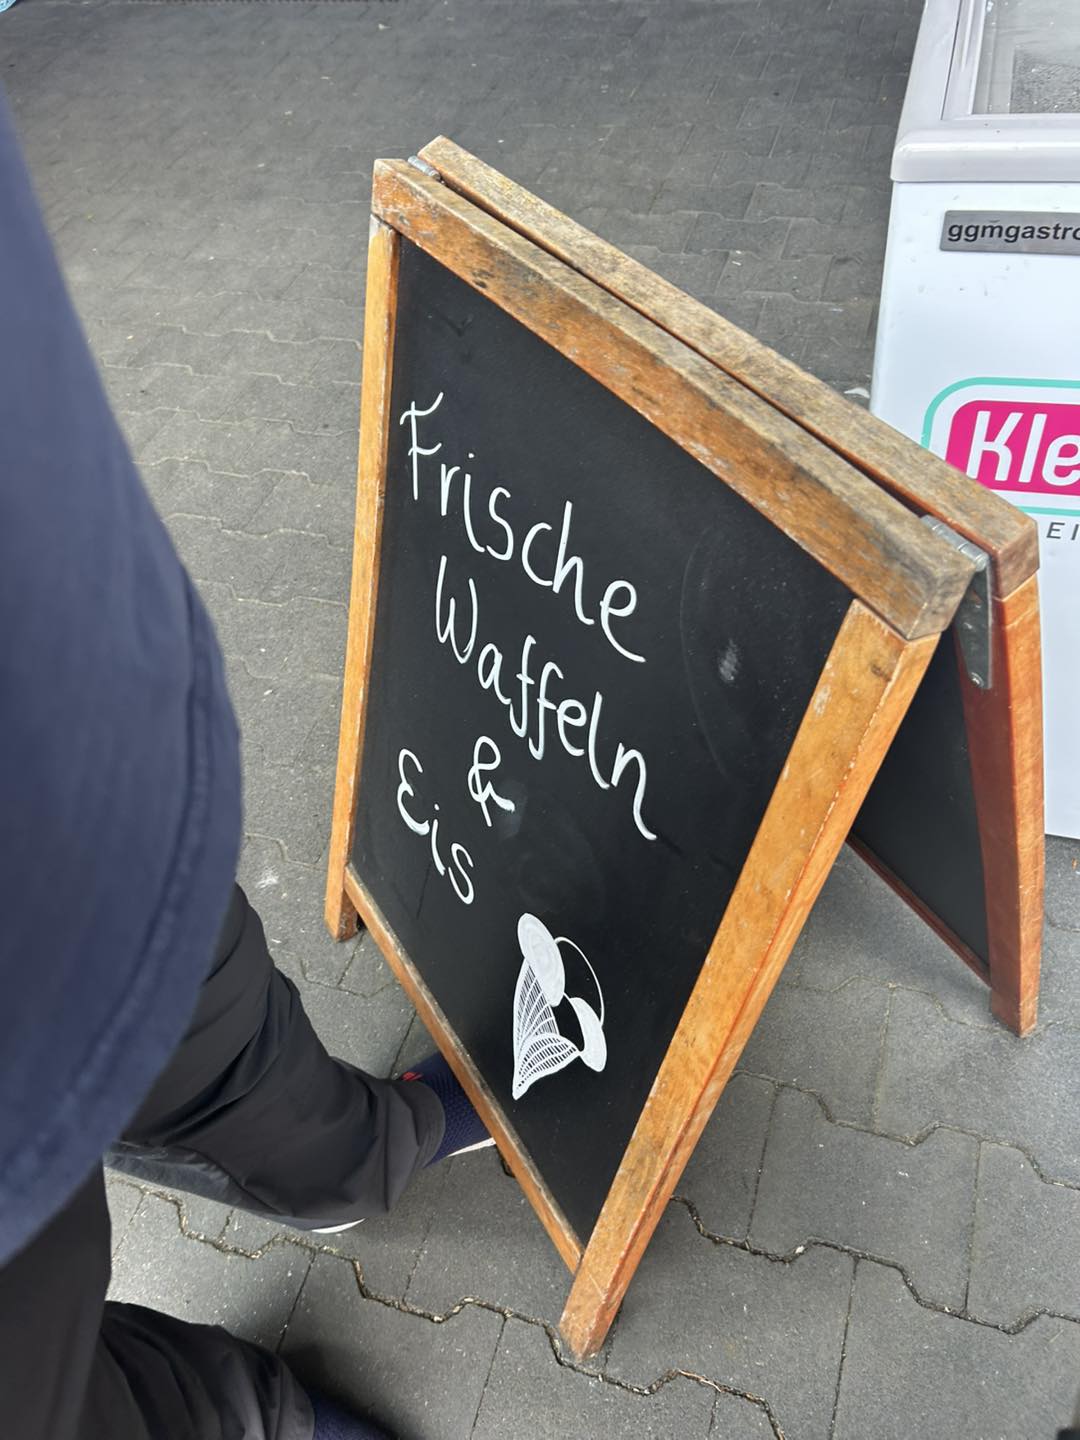 Frische
Waffeln
&
Eis
ggmgastro
Kle
EI